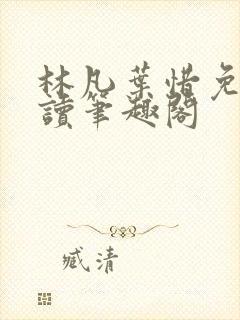 林凡葉惜免
讀筆趣閣
臧清